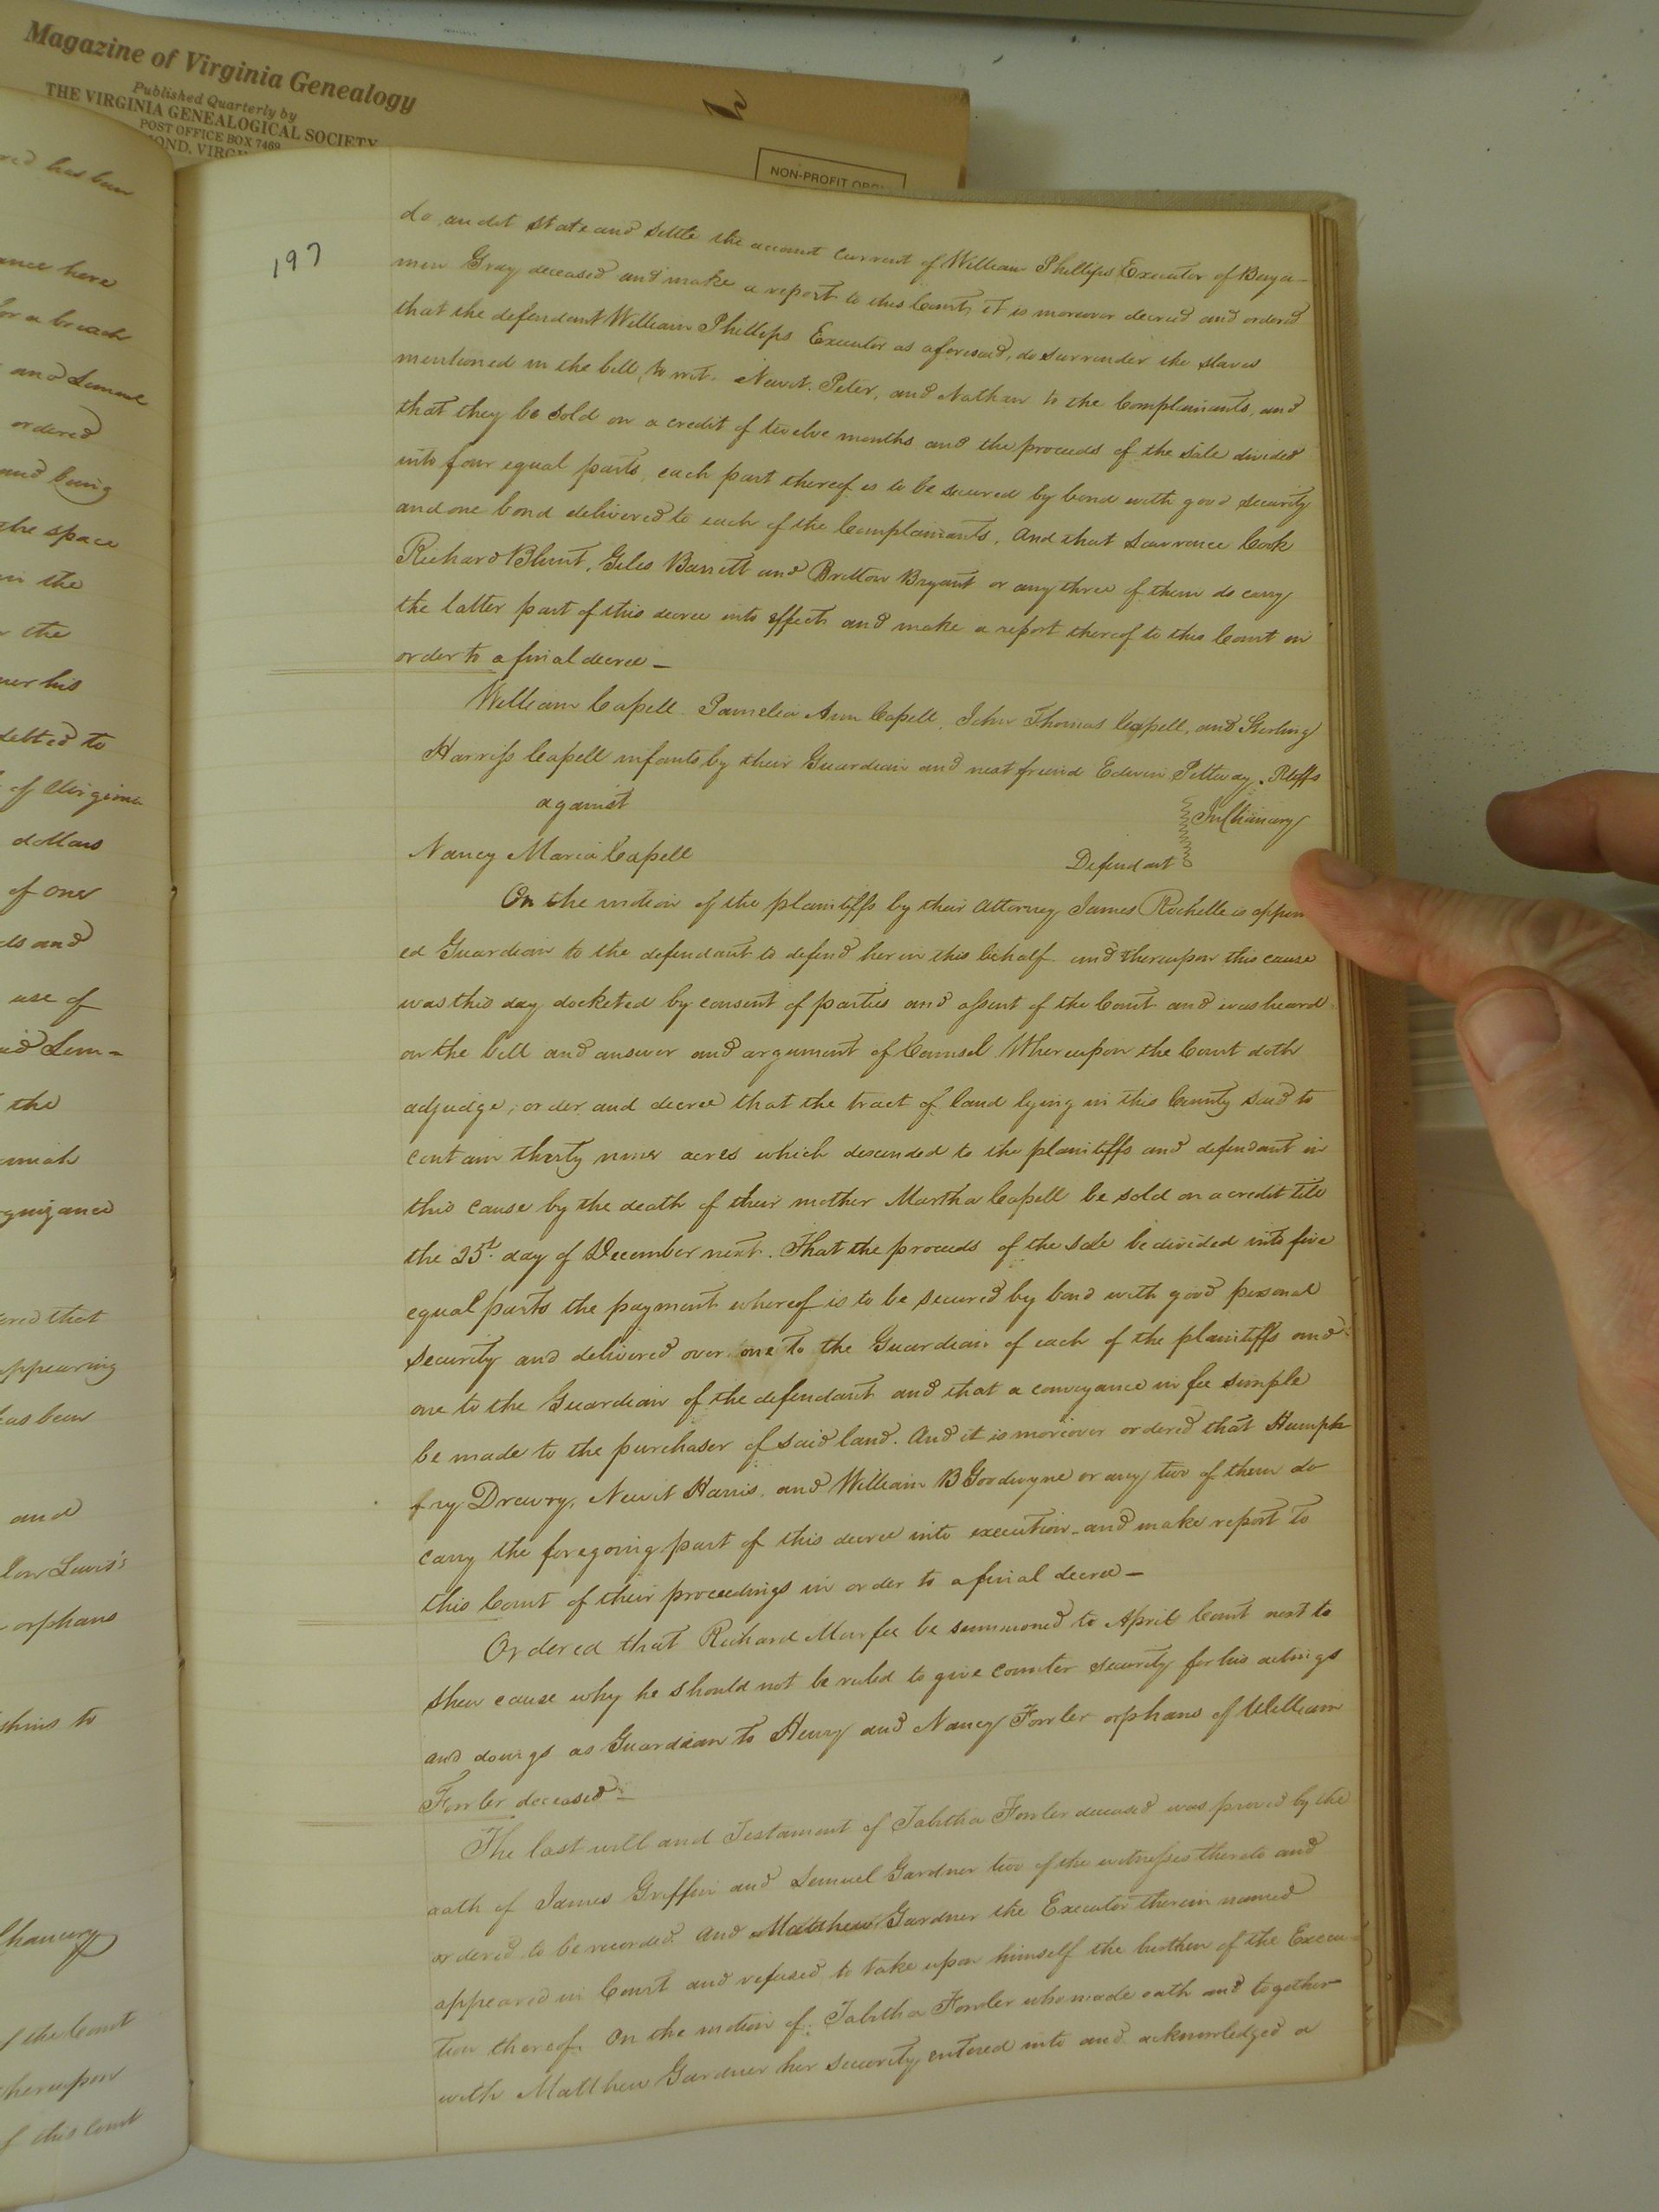 Magazine of Virginia Genealogy
Published Quarterly by
THE VIRGINIA GENEALOGICAL SOCIETY
POST OFFICE BOX 7469
OND, VIRG
NON-PROFIT ORG
has been
ance here
for a breach
and Lemuel
ordered
and being
the space
in the
the
her his
debted to
of Virginia
dollars
of one
ds and
use of
id Lem-
the
miah
gnizance
ered that
appearing
has been
and
low Lewis's
orphans
shins to
Chancery
of the Court
hereupon
of this Court
197
do audit state and settle the account current of William Phillips Executor of Benja-
min Gray deceased and make a report to this Court, it is moreover decreed and ordered
that the defendant William Phillips Executor as aforesaid, do surrender the slaves
mentioned in the bill, to wit. Newit. Peter, and Nathan to the Complainants, and
that they be sold on a credit of twelve months and the proceeds of the sale divided
into four equal parts, each part thereof is to be secured by bond with good security
and one bond delivered to each of the Complainants. And that Lawrence Cook
Richard Blunt, Giles Barrett and Britton Bryant or any three of them do carry
the latter part of this decree into effect and make a report thereof to this Court in
order to a final decree —
William Capell Pamelia Ann Capell, John Thomas Capell, and Sterling
Harriss Capell infants by their Guardian and next friend Edwin Pettway. Pltffs
against
In Chancery
Nancy Maria Capell Defendant
On the motion of the plaintiffs by their Attorney James Rochelle is appoin
ed Guardian to the defendant to defend her in this behalf and thereupon this cause
was this day docketed by consent of parties and assent of the Court and was heard
on the bill and answer and argument of Counsel Whereupon the Court doth
adjudge, order, and decree that the tract of land lying in this County said to
contain thirty nine acres which descended to the plaintiffs and defendant in
this cause by the death of their mother Martha Capell be sold on a credit till
the 25t. day of December next. That the proceeds of the sale be divided into five
equal parts the payment whereof is to be secured by bond with good personal
security and delivered over, one to the Guardian of each of the plaintiffs and
one to the Guardian of the defendant and that a conveyance in fee simple
be made to the purchaser of said land. And it is moreover ordered that Humph
fry Drewry, Newit Harris, and William B Goodwyne or any two of them do
carry the foregoing part of this decree into execution and make report to
this Court of their proceedings in order to a final decree —
Ordered that Richard Murfee be summoned to April Court next to
shew cause why he should not be ruled to give counter security for his actings
and doings as Guardian to Henry and Nancy Fowler orphans of William
Fowler deceased —
The last will and Testament of Tabitha Fowler deceased was proved by the
oath of James Griffin and Lemuel Gardner two of the witnesses thereto and
ordered to be recorded. And Matthew Gardner the Executor therein named
appeared in Court and refused to take upon himself the burthen of the Execu
tion thereof. On the motion of Tabitha Fowler who made oath and together
with Matthew Gardner her security entered into and acknowledged a